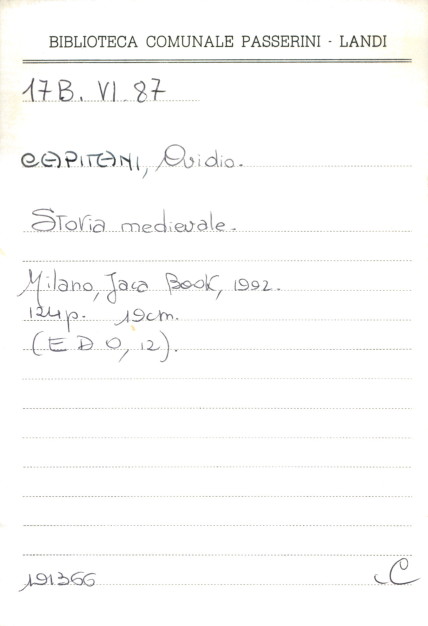 BIBLIOTECA COMUNALE PASSERINI - LANDI
17B. VI. 87
CAPITANI, Ovidio.
Storia medievale.
Milano, Jaca Book, 1992.
124p. 19cm.
(E D O, 12).
191366 C